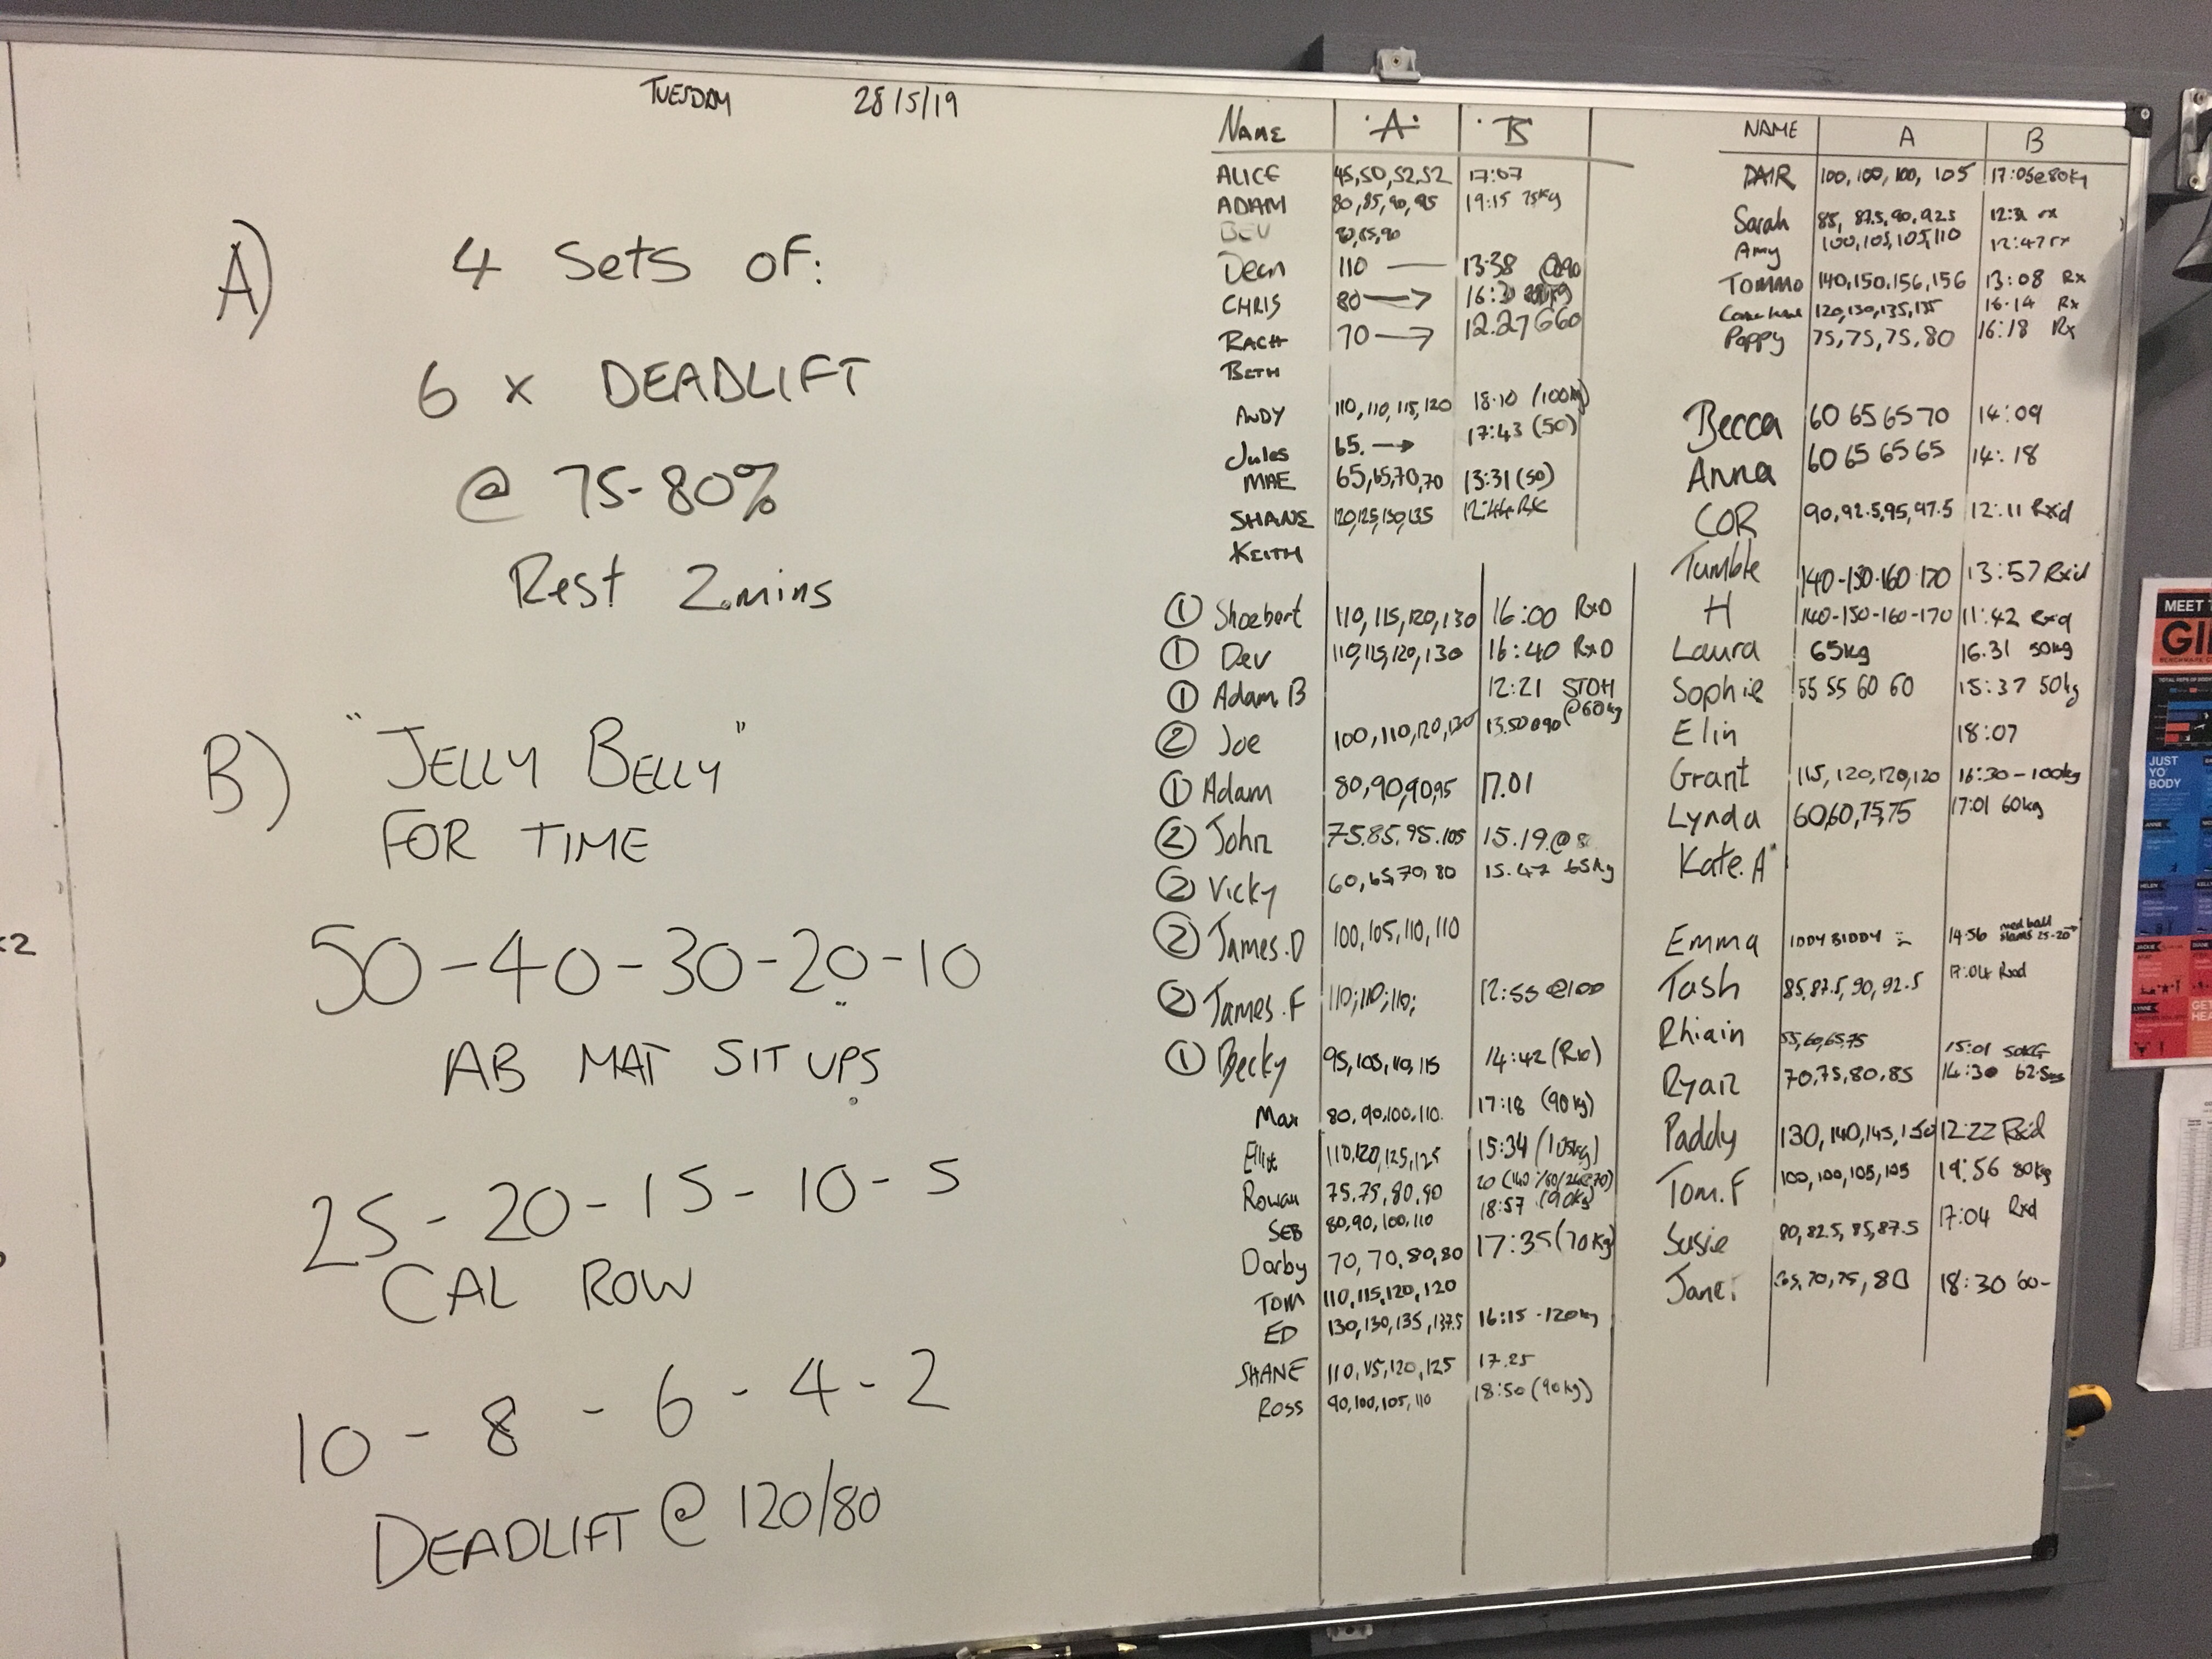 TUESDAY 28/5/19
A) 4 Sets of:
6 x DEADLIFT
@ 75-80%
Rest 2 mins
B) "JELLY BELLY"
FOR TIME
50-40-30-20-10
AB MAT SIT UPS
25-20-15-10-5
CAL ROW
10-8-6-4-2
DEADLIFT @ 120/80
NAME A B
ALICE 45,50,52,52 17:07
ADAM 80,85,90,95 19:15 75kg
BEV 80,85,90
Dean 110 — 13:38
CHRIS 80 →
RACH 70 → 12.27
BETH
ANDY 110,110,115,120 18:10 (100kg)
Jules 65. → 17:43 (50)
MAE 65,65,70,70 13:31 (50)
SHANE 120,125,130,135 12:44 RX
KEITH
① Shoebert 110,115,120,130 16:00 RxD
① Dev 110,115,120,130 16:40 RxD
① Adam B 12:21 STOH @60kg
② Joe 100,110,120,130 13.50 @90
① Adam 80,90,90,95 17.01
② John 75.85.95.105 15.19.@
② Vicky 60,65,70,80 15.47 65kg
② James.D 100,105,110,110
② James.F 110;110;110; 12:55 @100
① Becky 95,105,110,115 14:42 (Rx)
Max 80,90,100,110. 17:18 (90kg)
Elliot 110,120,125,125 15:34 (105kg)
Rowan 75,75,80,90 20
SEB 80,90,100,110 18:57 (90kg)
Darby 70,70,80,80 17:35 (70kg)
TOM 110,115,120,120
ED 130,130,135,137.5 16:15 -120kg
SHANE 110,115,120,125 17.25
ROSS 90,100,105,110 18:50 (90kg)
NAME A B
DAIR 100,100,100,105 17:05 @80kg
Sarah 85,87.5,90,92.5 rx
Amy 100,105,105,110 12:47 rx
TOMMO 140,150,156,156 13:08 Rx
120,130,135,135 16.14 Rx
Poppy 75,75,75,80 16:18 Rx
Becca 60 65 65 70 14:09
Anna 60 65 65 65 14:18
COR 90,92.5,95,97.5 12:11 Rxd
Tumble 140-150-160-170 13:57 Rxd
H 140-150-160-170 11:42 Rxd
Laura 65kg 16.31 50kg
Sophie 55 55 60 60 15:37 50kg
Elin 18:07
Grant 115,120,120,120 16:30-100kg
Lynda 60,60,75,75 17:01 60kg
Kate.A
Emma IDDY BIDDY 14:56 med ball slams 25-20
Tash 85,87.5,90,92.5 17:04 Rxd
Rhiain 55,60,65,75 15:01 50KG
Ryan 70,75,80,85 14:30
Paddy 130,140,145,150 12:22 Rxd
Tom.F 100,100,105,105 19:56 80kg
Susie 80,82.5,85,87.5 17:04 Rxd
Jane. 65,70,75,80 18:30 60-
MEET
GI
JUST
YO'
BODY
ANNIE
HELEN
JACKIE
LYNNE
GET
HEA